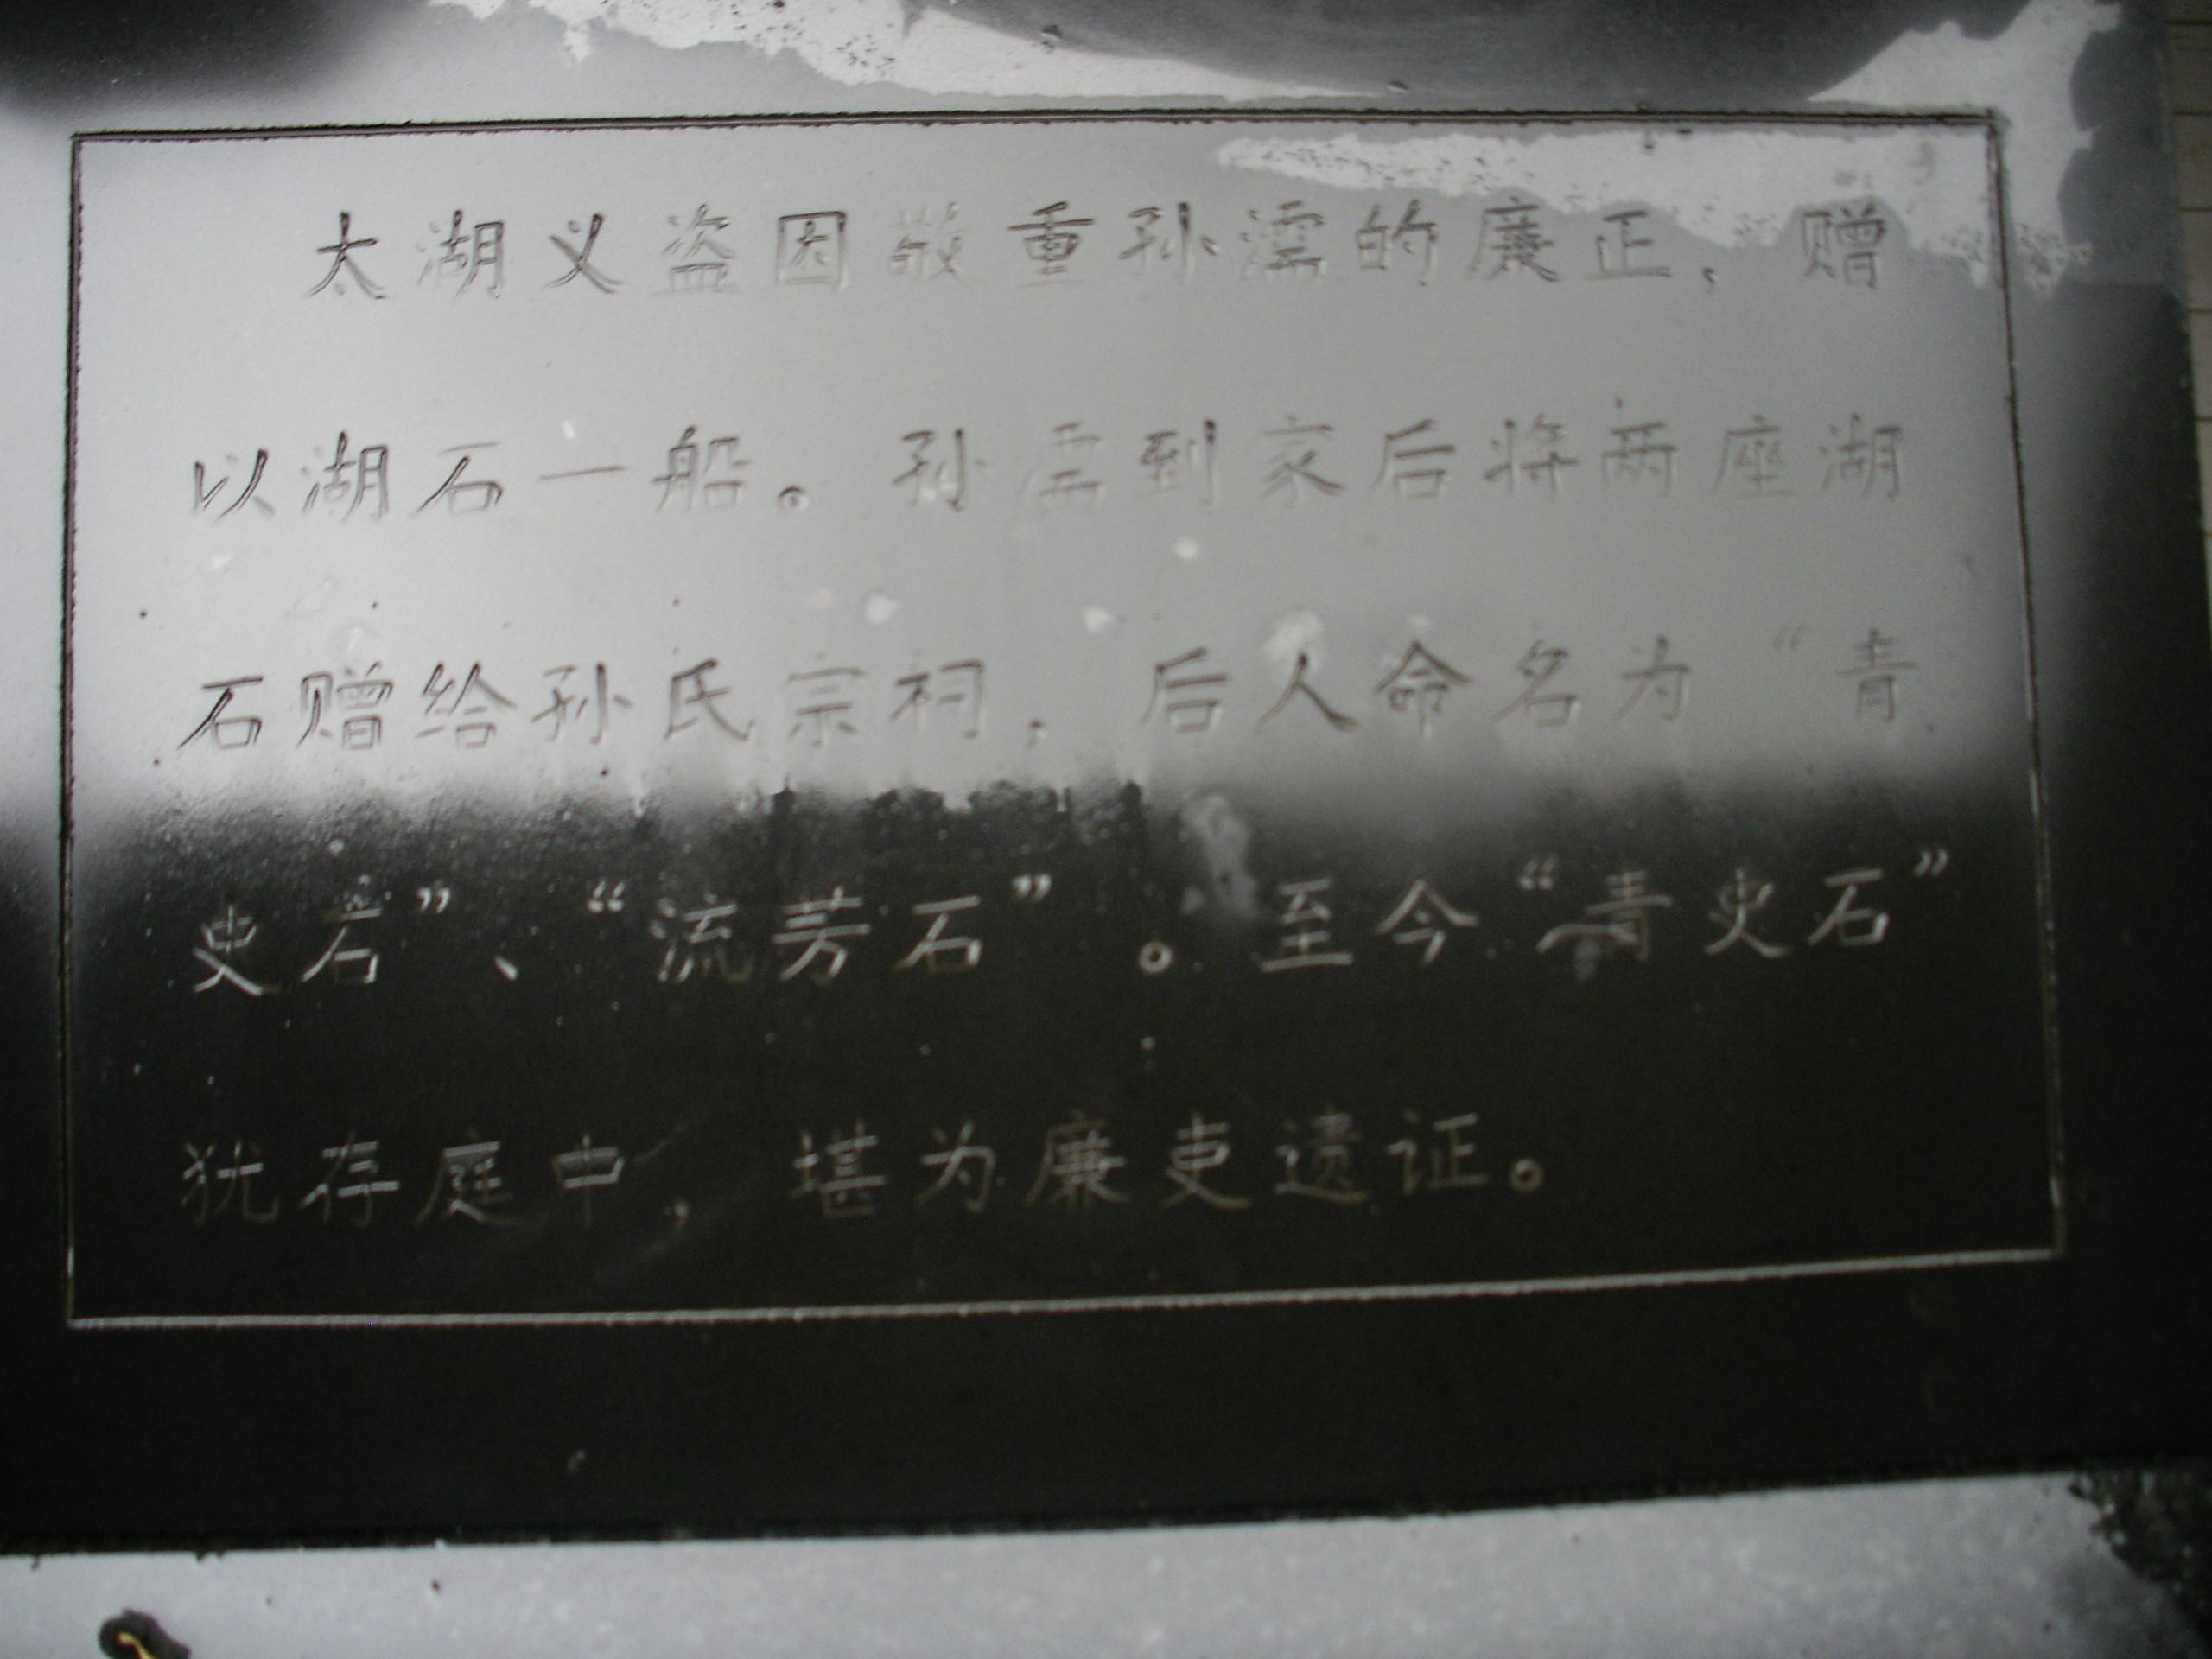 太湖义盗因敬重孙濡的廉正，赠
以湖石一船。孙濡到家后将两座湖
石赠给孙氏宗祠，后人命名为“青
史石”、“流芳石”。至今“青史石”
犹存庭中，堪为廉吏遗证。